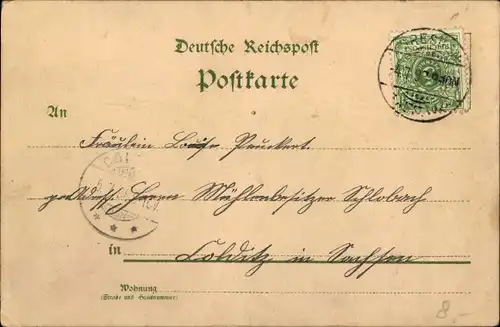 Deutsche Reichspost
Postkarte
An
Fräulein Louise Pauckert.
Herrn Mühlenbesitzer Schlobach
in Colditz in Sachsen
Wohnung
(Straße und Hausnummer)
8.-